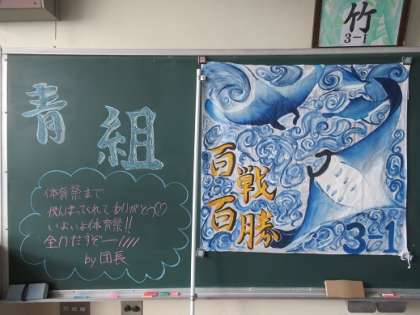 青組
体育祭まで
がんばってくれてありがとう♡
いよいよ体育祭!!
全力だすぞー!!!!
by 団長
百戦
百勝
3-1
竹
3-1